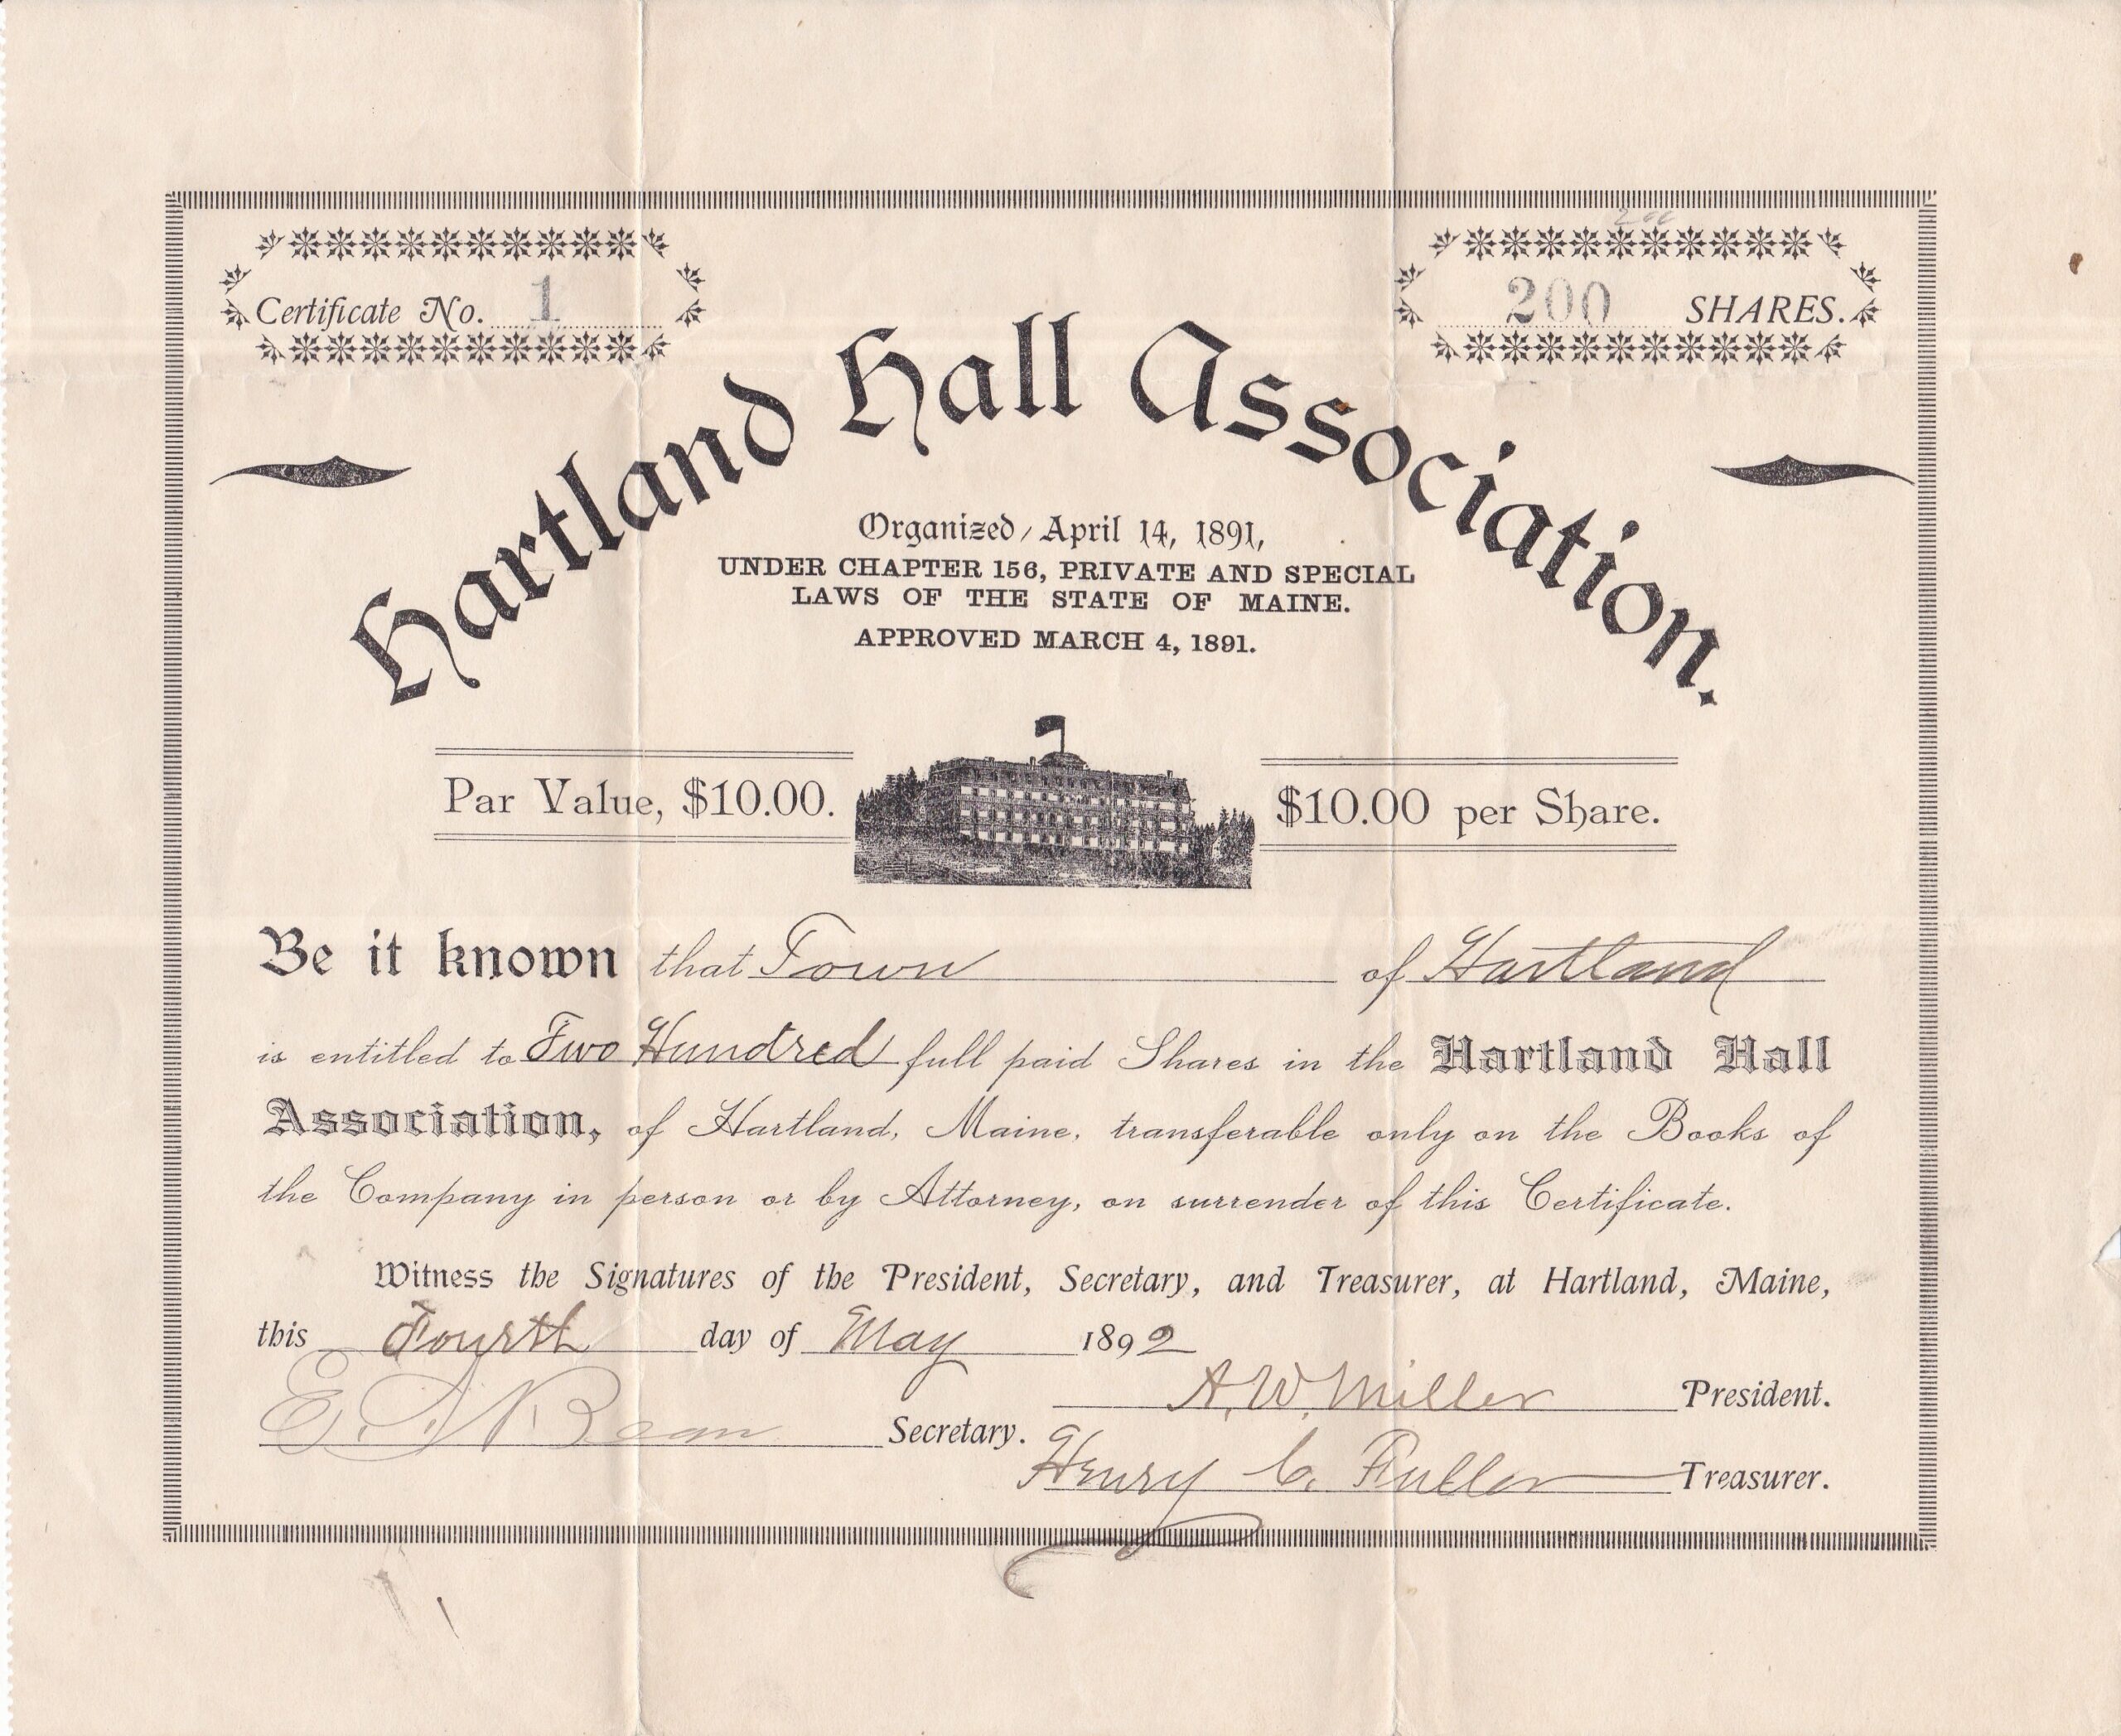 200
Certificate No. 1
200 SHARES.
Hartland Hall Association.
Organized, April 14, 1891,
UNDER CHAPTER 156, PRIVATE AND SPECIAL
LAWS OF THE STATE OF MAINE.
APPROVED MARCH 4, 1891.
Par Value, $10.00. $10.00 per Share.
Be it known that Town of Hartland
is entitled to Two Hundred full paid Shares in the Hartland Hall
Association, of Hartland, Maine, transferable only on the Books of
the Company in person or by Attorney, on surrender of this Certificate.
Witness the Signatures of the President, Secretary, and Treasurer, at Hartland, Maine,
this Fourth day of May 1892
A. W. Miller President.
E. A. Bean Secretary.
Henry C. Fuller Treasurer.